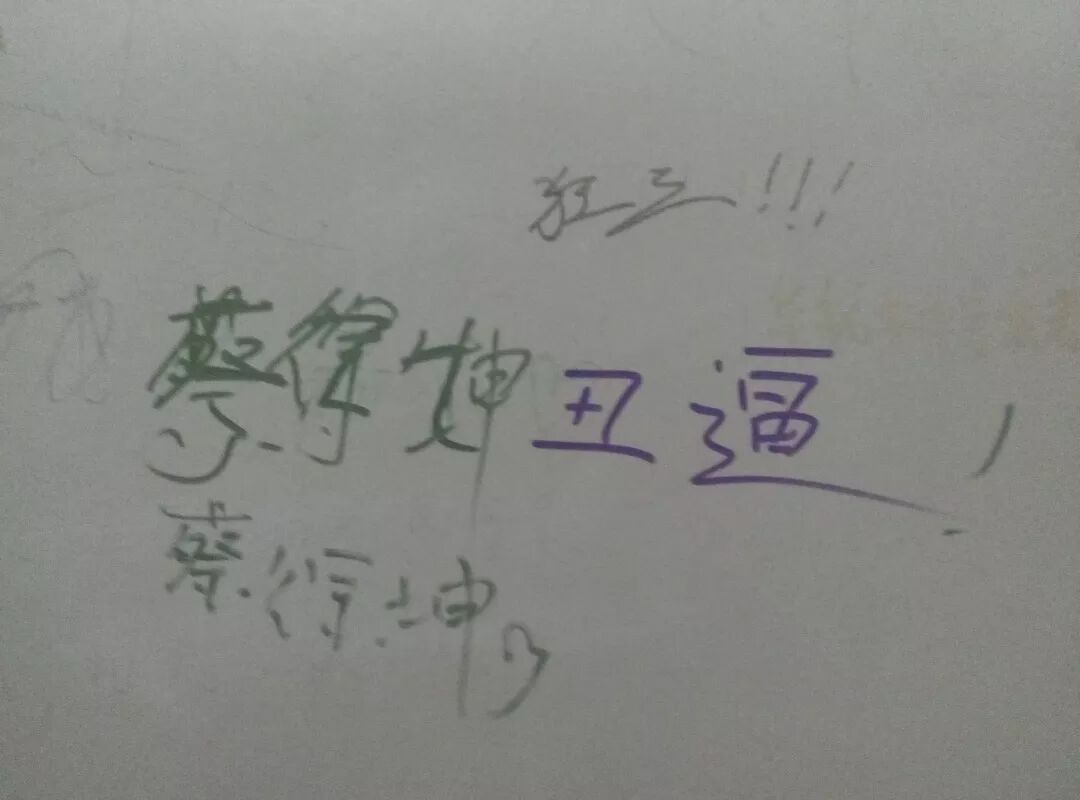 狂三!!!
蔡徐坤丑逼
蔡徐坤